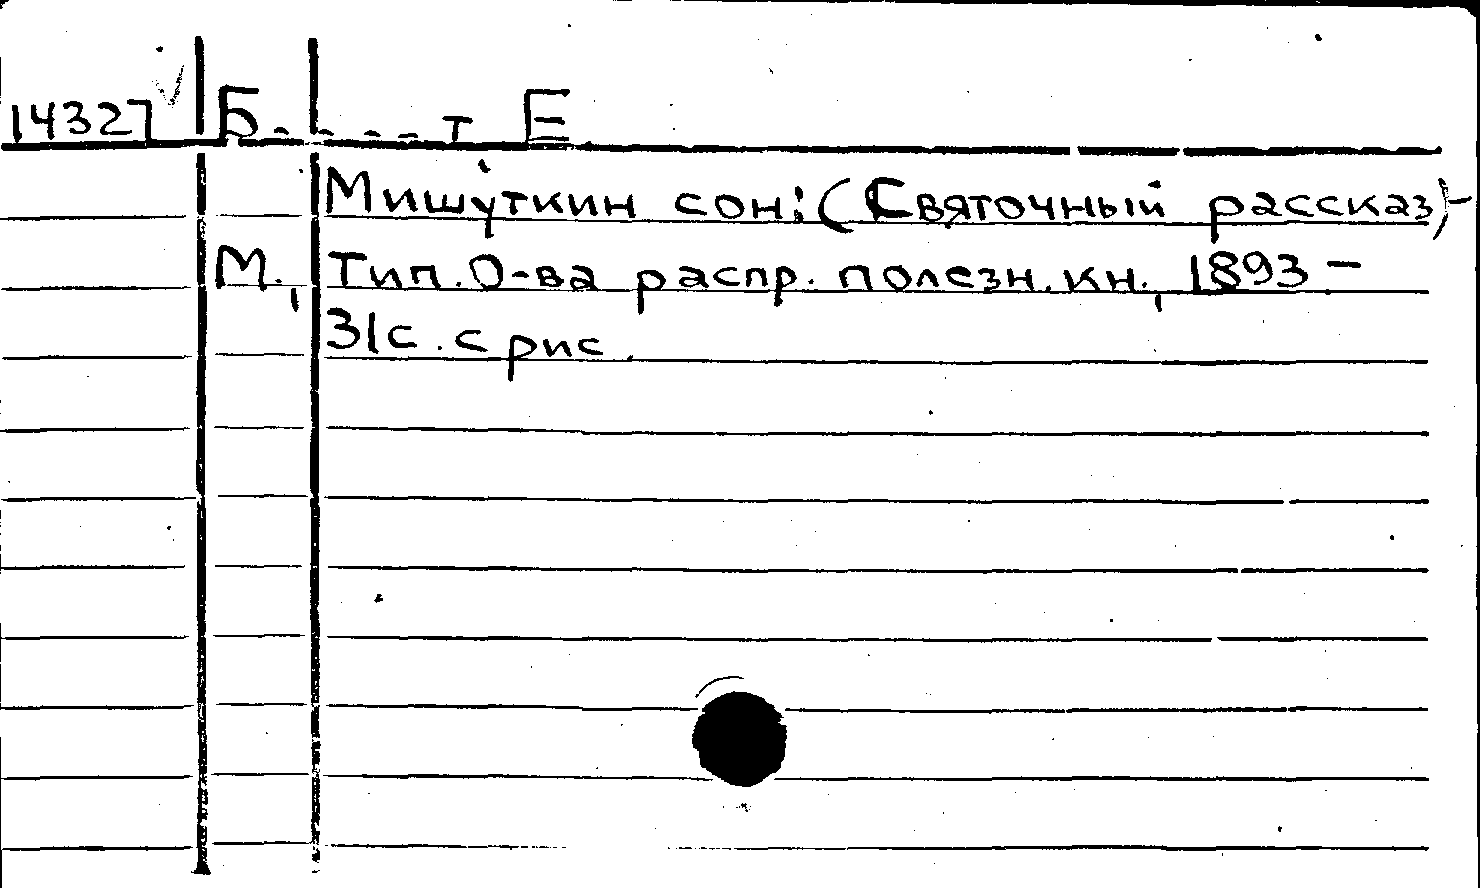 14327 Б. - - - - т Е
Мишуткин сон: (Святочный рассказ) -
М., Тип. О-ва распр. полезн. кн., 1893 -
31с. с рис.